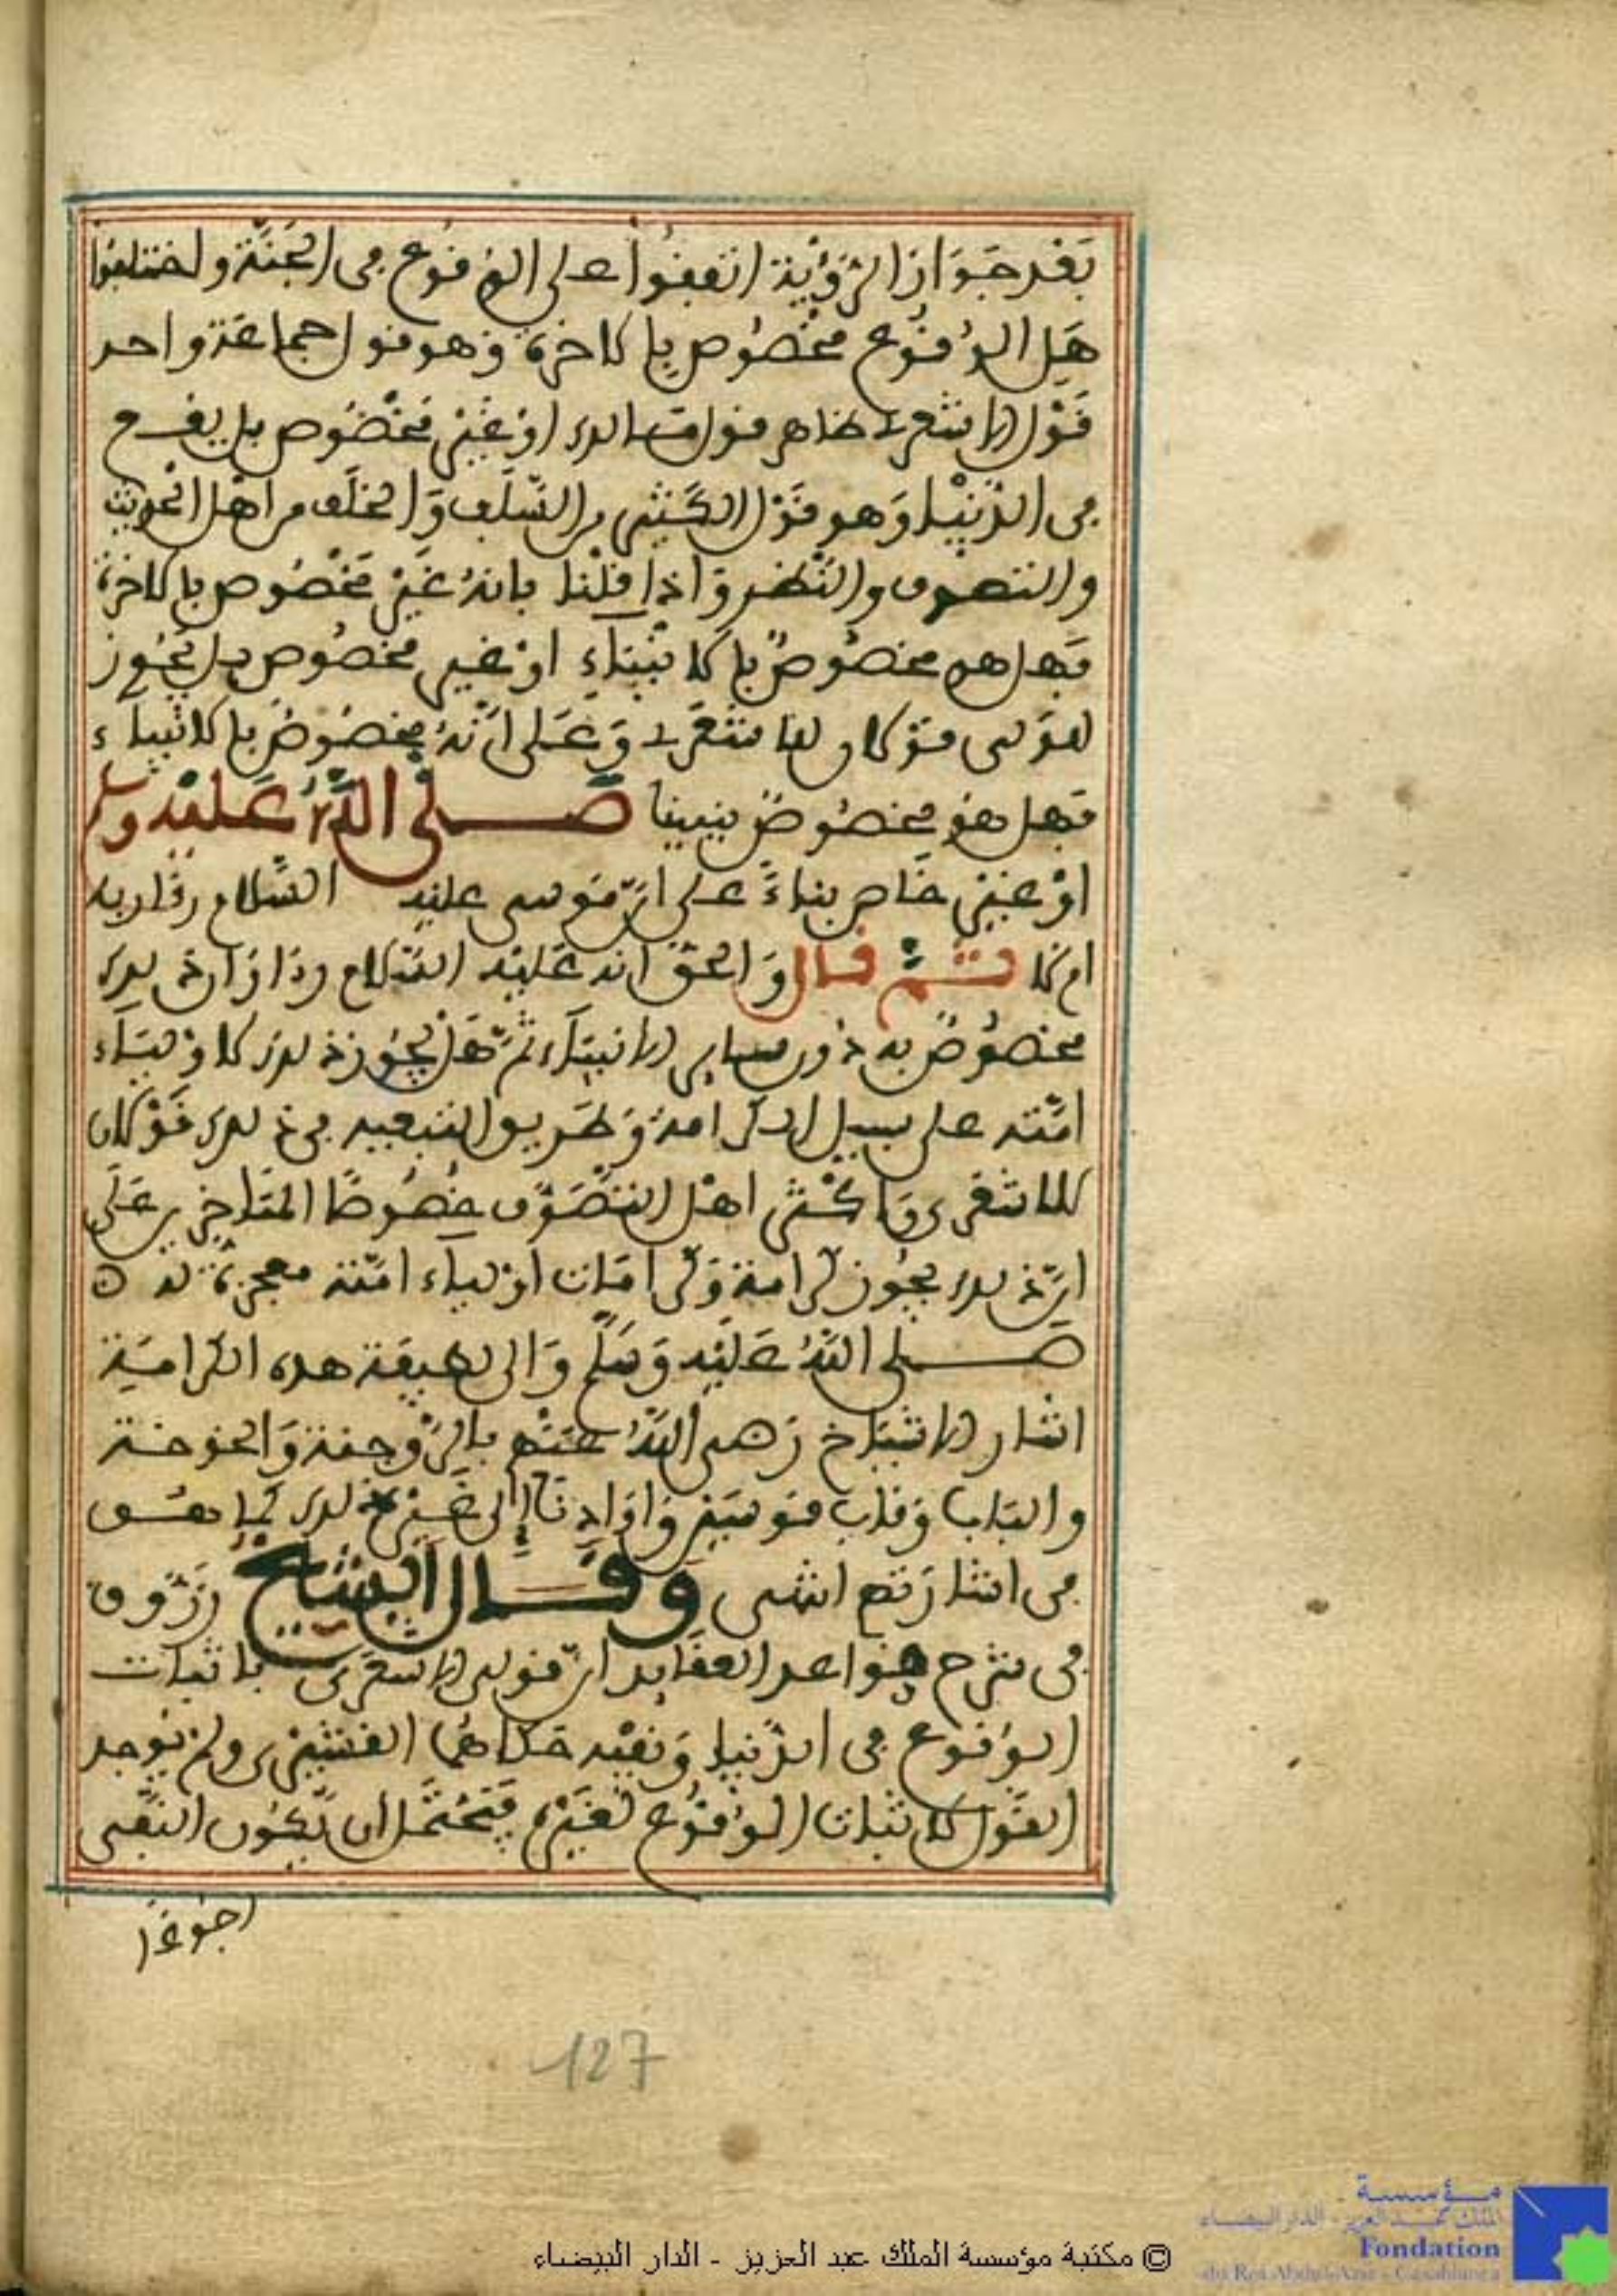 بَعْد جَوَاز الرُّؤْيَة اتفقُوا على الوُقُوع في الجَنَّة واختلفوا
هَل الوُقُوع مخصُوص بالاخرة وهو قول جماعة واحد
قَوْل الاشعري وظاهر قول مالك اوْ غَيْر مَخْصُوص بل يقع
في الدّنْيا وَهو قَوْل الكَثير من السّلَف وَالخلَف من اهْل الحديث
والتصوف والنَّظر وَاذا قلْنا بانهُ غَيْر مَخْصُوص بالاخرة
فهل هو مخصُوصٌ بالانبيَاءِ اوْ غير مخصُوص بل يجُوز
للوَلى قوْلان للاشعَري وَعَلى انّهُ مخصُوصٌ بالانبياء
فهل هو مخصُوصٌ بنبينا صلى اللهُ عَليْه وسلم
اوْ غيْر خَاص بناءً على انّ مُوسى عليه السّلام رءا ربه
ام لا ثمّ قال وَالحق انه عَليْه السّلام رءا وَان ذلك
مخصُوصٌ به دُون ساير الانبيَاء ثمّ هَلْ يجُوز ذلك لاوْليَاء
امّته على سبيل الكرامة وَطَريق التبعية في ذلك قَوْلان
للاشعرى وَاكْثر اهْل التّصَوّف خصُوصًا المتَاخرين عَلَى
انّ ذلك يجُوز كرامة وَكرامَات اوْلياء امّته معجزة له
صلى اللهُ عَلَيْه وَسَلّم وَالى لطيفَة هذه الكراميَة
اشار الاشيَاخ رَضى اللهُ عنْهم بالرّوجنة وَالخوخة
والبَاب وَقاب قوسَيْن وَاوَادنَا إلى غيْر ذلك ممّا هو
في اشارَتهم انتهى وَقَال الشيخ زَرّوق
في شرح قواعد العقَايد انّ قول الاشعَرى باثبات
الوُقوع في الدّنيا وَنفيْه حكاهُما القشيْري ولمْ يُوجد
القَوْل لاثبَات الوُقُوع لغَيْره فَيَحْتَمل ان يّكُون النّفى
رجُوعًا
127
© مكتبة مؤسسة الملك عبد العزيز - الدار البيضاء
مؤسسة
الملك عبد العزيز - الدار البيضاء
Fondation
du Roi Abdul-Aziz - Casablanca